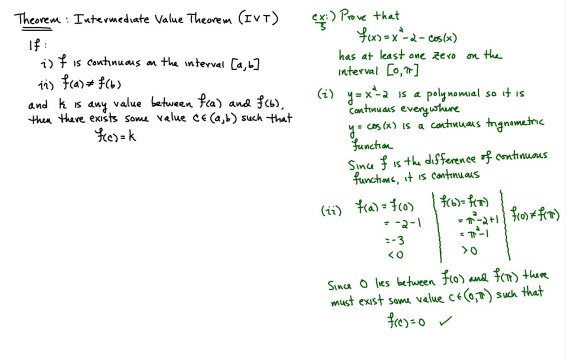 Theorem: Intermediate Value Theorem (IVT)
If:
i) f is continuous on the interval [a,b]
ii) f(a) ≠ f(b)
and k is any value between f(a) and f(b),
then there exists some value c∈(a,b) such that
f(c)=k
ex:) Prove that
5
f(x)=x²-2-cos(x)
has at least one zero on the
interval [0,π]
(i) y=x²-2 is a polynomial so it is
continuous everywhere
y=cos(x) is a continuous trignometric
function
Since f is the difference of continuous
functions, it is continuous
(ii) f(a)=f(0)
=-2-1
=-3
<0
f(b)=f(π)
=π²-2+1
=π²-1
>0
f(0)≠f(π)
Since 0 lies between f(0) and f(π) there
must exist some value c∈(0,π) such that
f(c)=0 ✓